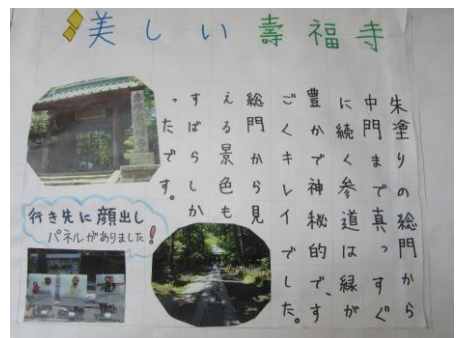 美しい壽福寺
朱塗りの総門から
中門まで真っすぐ
に続く参道は緑が
豊かで神秘的で、す
ごくキレイでした。
総門から見
える景色も
すばらしか
ったです。
行き先に顔出し
パネルがありました!